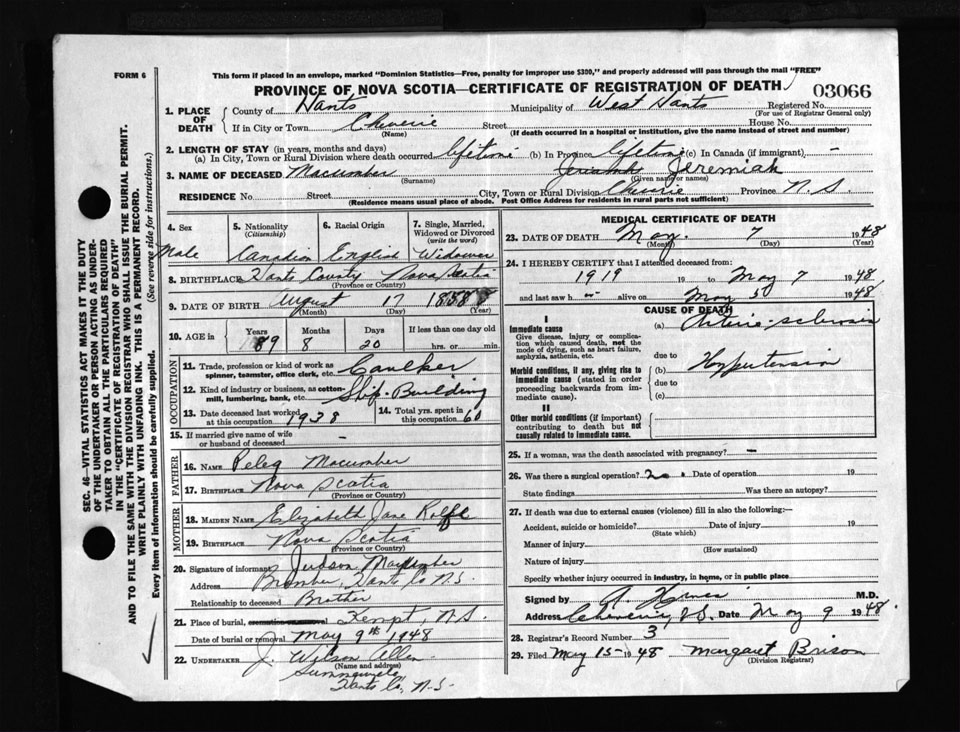 FORM 6
This form if placed in an envelope, marked "Dominion Statistics—Free, penalty for improper use $300," and properly addressed will pass through the mail "FREE"
PROVINCE OF NOVA SCOTIA—CERTIFICATE OF REGISTRATION OF DEATH
03066
1. PLACE OF DEATH
County of Hants Municipality of West Hants Registered No.
(For use of Registrar General only)
If in City or Town Cheverie Street House No.
(Name) (If death occurred in a hospital or institution, give the name instead of street and number)
2. LENGTH OF STAY (in years, months and days)
(a) In City, Town or Rural Division where death occurred lifetime (b) In Province lifetime (c) In Canada (if immigrant) -
3. NAME OF DECEASED Macumber Jeremiah
(Surname) (Given name or names)
RESIDENCE No. Street City, Town or Rural Division Cheverie Province N.S.
(Residence means usual place of abode. Post Office Address for residents in rural parts not sufficient)
4. Sex
Male
5. Nationality
(Citizenship)
Canadian
6. Racial Origin
English
7. Single, Married, Widowed or Divorced
(write the word)
Widower
8. BIRTHPLACE Hants County Nova Scotia
(Province or Country)
9. DATE OF BIRTH August 17 1858
(Month) (Day) (Year)
10. AGE in
Years Months Days If less than one day old
89 8 20 hrs. or min.
OCCUPATION
11. Trade, profession or kind of work as spinner, teamster, office clerk, etc. Caulker
12. Kind of industry or business, as cotton-mill, lumbering, bank, etc. Ship-Building
13. Date deceased last worked at this occupation 1938
14. Total yrs. spent in this occupation 60
15. If married give name of wife or husband of deceased -
FATHER
16. NAME Peleg Macumber
17. BIRTHPLACE Nova Scotia
(Province or Country)
MOTHER
18. MAIDEN NAME Elizabeth Jane Rolfe
19. BIRTHPLACE Nova Scotia
(Province or Country)
20. Signature of informant Judson Macumber
Address Hants Co N.S.
Relationship to deceased Brother
21. Place of burial, Kempt, N.S.
Date of burial or removal May 9th 1948
22. UNDERTAKER J. Wilson Allen
(Name and address)
Hants Co, N.S.
MEDICAL CERTIFICATE OF DEATH
23. DATE OF DEATH May. 7 1948
(Month) (Day) (Year)
24. I HEREBY CERTIFY that I attended deceased from:
1919 19 to May 7 1948
and last saw h alive on May 5 1948
CAUSE OF DEATH
I
Immediate cause
Give disease, injury or complication which caused death, not the mode of dying, such as heart failure, asphyxia, asthenia, etc.
(a) Arterio-sclerosis
due to
Morbid conditions, if any, giving rise to immediate cause (stated in order proceeding backwards from immediate cause).
(b) Hypertension
due to
(c)
II
Other morbid conditions (if important) contributing to death but not causally related to immediate cause.
25. If a woman, was the death associated with pregnancy? -
26. Was there a surgical operation? Date of operation 19
State findings Was there an autopsy?
27. If death was due to external causes (violence) fill in also the following:—
Accident, suicide or homicide? Date of injury 19
(State which)
Manner of injury
(How sustained)
Nature of injury
Specify whether injury occurred in industry, in home, or in public place
Signed by M.D.
Address Date May 9 1948.
28. Registrar's Record Number 3
29. Filed May 15- 1948 Margaret Brison
(Division Registrar)
SEC. 46—VITAL STATISTICS ACT MAKES IT THE DUTY
OF THE UNDERTAKER OR PERSON ACTING AS UNDER-
TAKER TO OBTAIN ALL THE PARTICULARS REQUIRED
IN THE "CERTIFICATE OF REGISTRATION OF DEATH"
AND TO FILE THE SAME WITH THE DIVISION REGISTRAR WHO SHALL ISSUE THE BURIAL PERMIT.
WRITE PLAINLY WITH UNFADING INK. THIS IS A PERMANENT RECORD.
Every item of information should be carefully supplied. (See reverse side for instructions.)